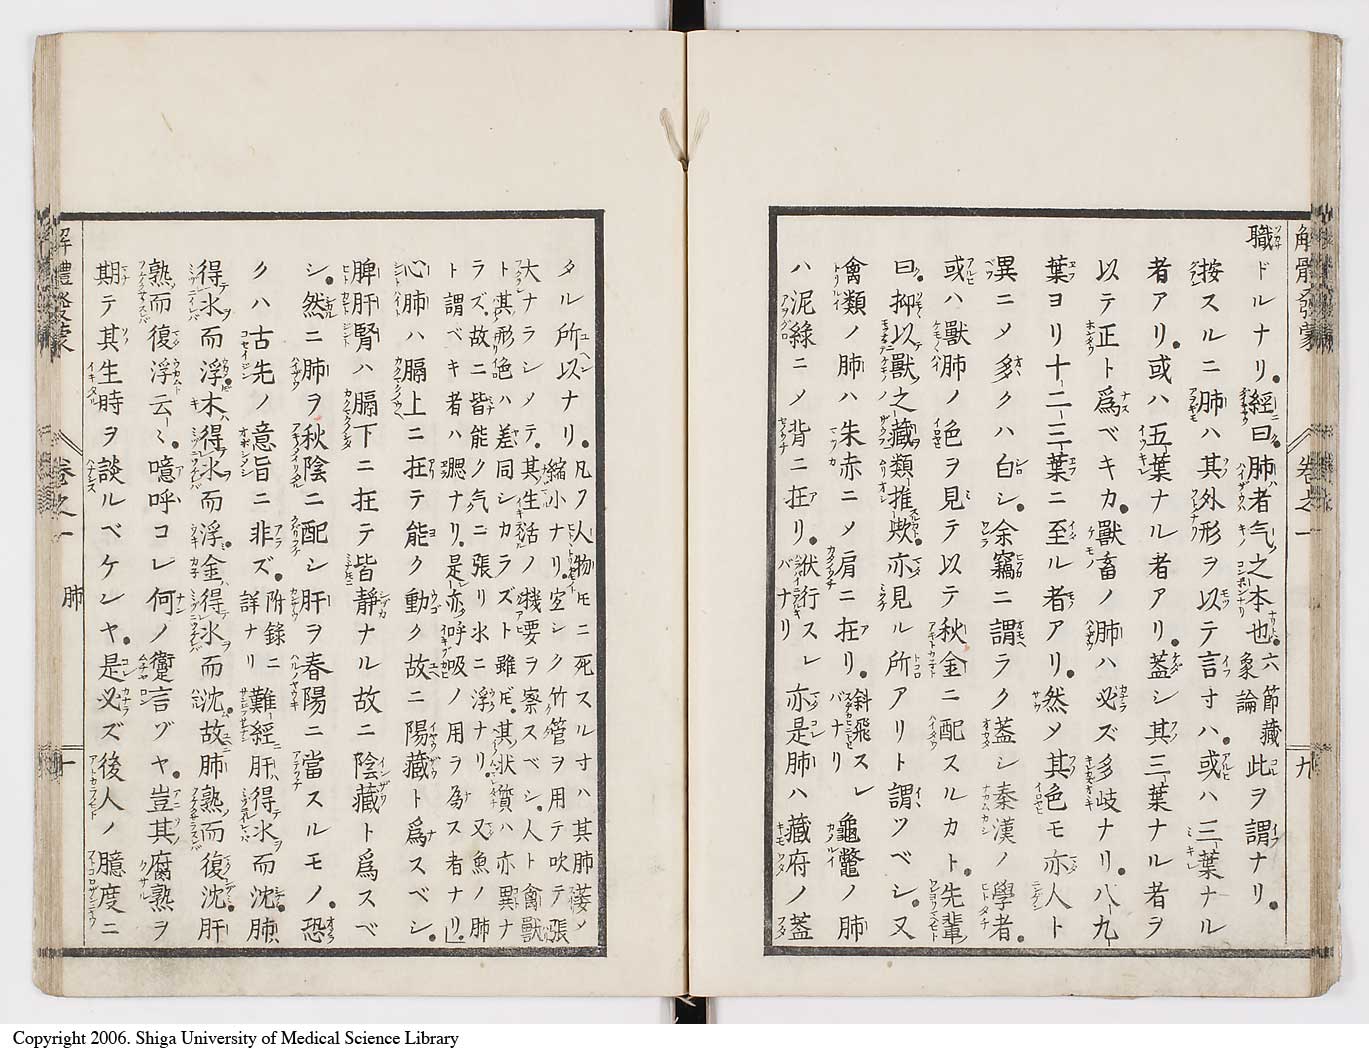 解體發蒙 卷之一 九
職ドルナリ。經曰肺者气之本也。六節藏象論此ヲ謂ナリ。
按スルニ肺ハ其外形ヲ以テ言寸ハ。或ハ三葉ナル
者アリ。或ハ五葉ナル者アリ。蓋シ其三葉ナル者ヲ
以テ正ト爲ベキカ。獸畜ノ肺ハ必ズ多岐ナリ。八九
葉ヨリ十二三葉ニ至ル者アリ。然ソ其色モ亦人ト
異ニメ多クハ白シ。余竊ニ謂ラク蓋シ秦漢ノ學者。
或ハ獸肺ノ色ヲ見テ以テ秋金ニ配スルカト。先輩
曰。抑以獸之藏類推歟。亦見ル所アリト謂ツベシ。又
禽類ノ肺ハ朱赤ニメ肩ニ在リ。斜飛スレバナリ 龜鼈ノ肺
ハ泥綠ニメ背ニ在リ。伏行スレバナリ 亦是肺ハ藏府ノ蓋
タル所以ナリ。凡ソ人物𪜈ニ死スル寸ハ其肺萎メ
縮小ナリ。空シク竹管ヲ用テ吹テ張
大ナラシメテ。其生活ノ機要ヲ察スベシ。人ト禽獸
ト其形色ハ差同シカラズト雖𪜈。其狀質ハ亦異ナ
ラズ。故ニ皆能ク气ニ張リ水ニ浮ナリ。又魚ノ肺
ト謂ベキ者ハ鰓ナリ。是亦呼吸ノ用ヲ為ス者ナリ。
心肺ハ膈上ニ在テ能ク動ク故ニ陽藏ト爲スベシ。
脾肝腎ハ膈下ニ在テ皆靜ナル故ニ陰藏ト爲スベ
シ。然ニ肺ヲ秋陰ニ配シ肝ヲ春陽ニ當スルモノ。恐
クハ古先ノ意旨ニ非ズ。附錄ニ詳ナリ 難經肝得水而沈肺
得水而浮木得水而浮。金得水而沈。故肺熟而復沈肝
熟而復浮云々。噫呼コレ何ノ讆言ゾヤ。豈其腐熟ヲ
期テ其生時ヲ談ルベケンヤ。是必ズ後人ノ臆度ニ
解體發蒙 卷之一 肺 十
Copyright 2006. Shiga University of Medical Science Library